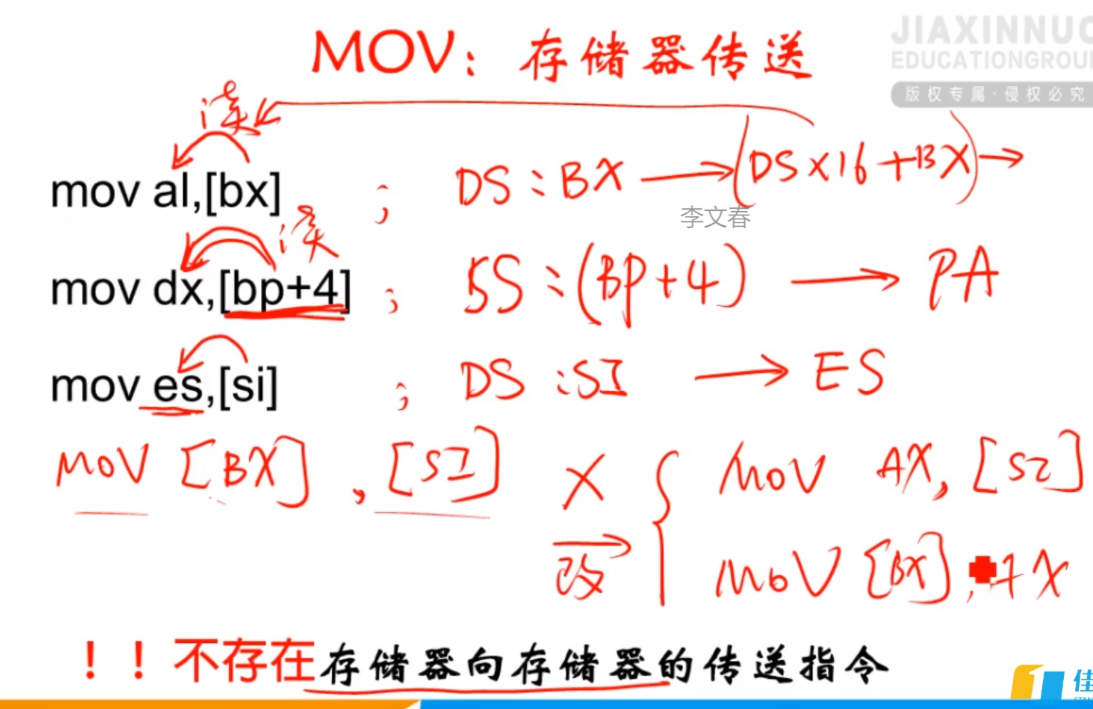 MOV：存储器传送
JIAXINNUO
EDUCATIONGROU
版权专属·侵权必究
读
mov al,[bx] ; DS:BX → (DS×16+BX) →
李文春
读
mov dx,[bp+4] ; SS:(BP+4) → PA
mov es,[si] ; DS:SI → ES
MOV [BX], [SI] × { MOV AX, [SI]
改 MOV [BX],
！！不存在存储器向存储器的传送指令
佳